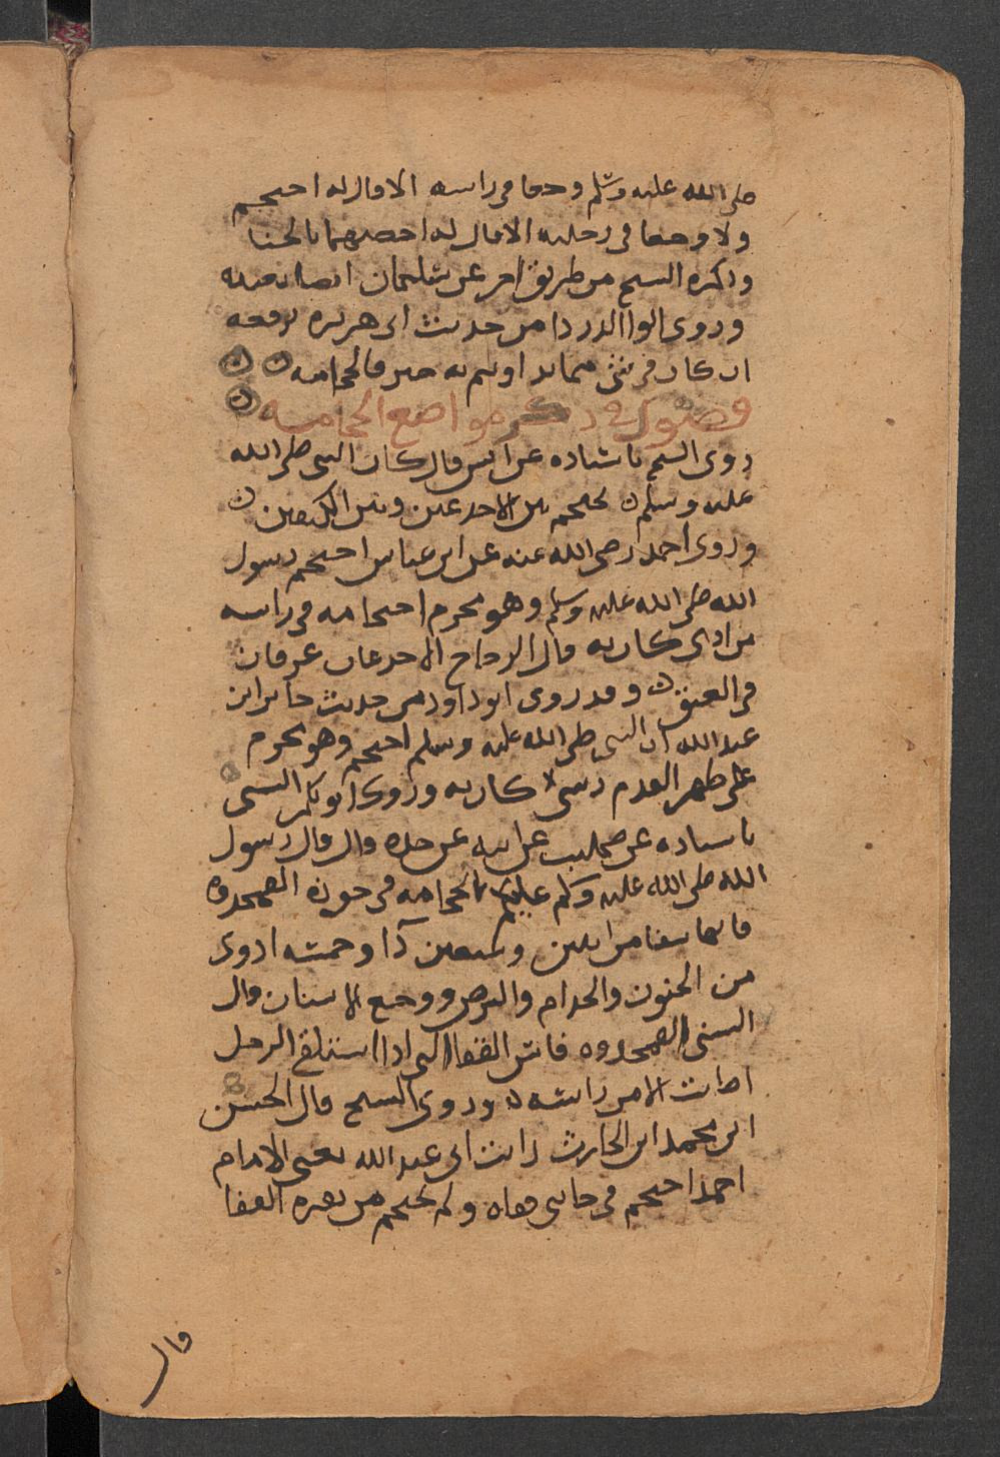 صلى الله عليه وسلم وجعا فى راسه الا قال له احتجم
ولا وجعا فى رجليه الا قال له اخضبهما بالحنا
وذكره الشيخ من طريق اخر عن سليمان ايضا بمعناه
وروى ابوا الدردا من حديث ابى هريره يرفعه
ان كان فى شى مما تداويتم به خير فالحجامه
فصل فى ذكر مواضع الحجامه
روى الشيخ باسناده عن انس قال كان النبى صلى الله
عليه وسلم يحتجم بين الاخدعين وبين الكتفين
وروى احمد رضى الله عنه عن ابن عباس احتجم رسول
الله صلى الله عليه وسلم وهو محرم احتجامه فى راسه
من اذى كان به قال الزجاج الاخدعان عرقان
فى العنق وقد روى ابو داود من حديث جابر ابن
عبد الله ان النبى صلى الله عليه وسلم احتجم وهو محرم
على ظهر القدم كان به وروى ابو بكر السنى
باسناده عن صهيب عن ابيه عن جده قال قال رسول
الله صلى الله عليه وسلم عليكم بالحجامه فى جوزه القمحدوه
فانها شفا من اثنين وسبعين دآ وخمسه ادوى
من الجنون والجذام والبرص ووجع الاسنان قال
السنى القمحدوه فاس القفا التى اذا استلقى الرجل
اصابت الارض راسه وروى الشيخ قال الحسن
ابن محمد ابن الحارث رايت ابى عبد الله يعنى الامام
احمد احتجم فى جانبى قفاه ولم يحتجم من نقره القفا
قال